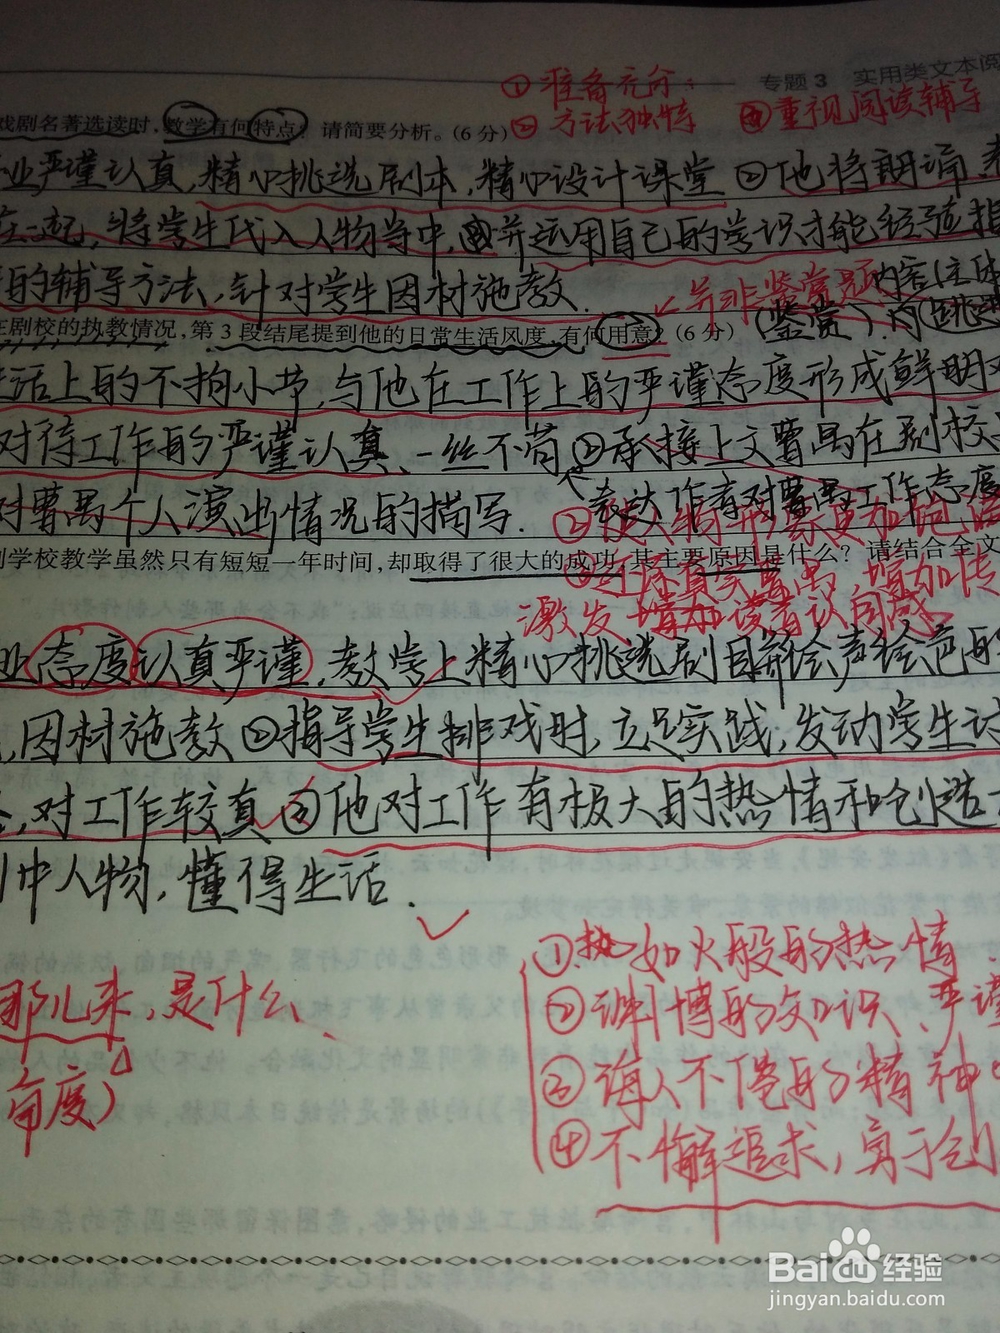 专题3 实用类文本阅
①准备充分
②方法独特 ③重视阅读辅导
戏剧名著选读时,教学有何特点?请简要分析。(6分)
业严谨认真,精心挑选剧本,精心设计课堂 ②他将朗诵、表
在一起,将学生代入人物当中,③并运用自己的学识才能经验指
的辅导方法,针对学生因材施教.
并非鉴赏题 内容(主体
在剧校的执教情况,第3段结尾提到他的日常生活风度,有何用意?(6分)
(鉴赏)内
生活上的不拘小节,与他在工作上的严谨态度形成鲜明对
对待工作的严谨认真、一丝不苟 ②承接上文曹禺在剧校
表达作者对曹禺工作态度
对曹禺个人演出情况的描写.
②使人物形象更加饱满
剧学校教学虽然只有短短一年时间,却取得了很大的成功,其主要原因是什么?请结合全文
③还原真实曹禺,增加
激发增加读者认同感
业态度认真严谨,教学上精心挑选剧目并绘声绘色的
,因材施教 ②指导学生排戏时,立足实践,发动学生讨
,对工作较真 ③他对工作有极大的热情和创造
中人物,懂得生活.
①热如火般的热情
那儿来 是什么.
②渊博的知识、严谨
角度)
③诲人不倦的精神
④不懈追求,勇于创
Baidu经验
jingyan.baidu.com